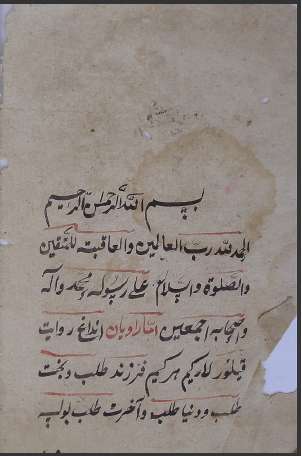 بسم الله الرحمن الرحيم
الحمد لله رب العالمين والعاقبة للمتقين
والصلوة والسلام على رسوله محمد وآله
واصحابه اجمعين اما راويان اندا
كيم هر كيم فرزند طلب وبخت
طلب ودنيا طلب وآخرت طلب بولسه